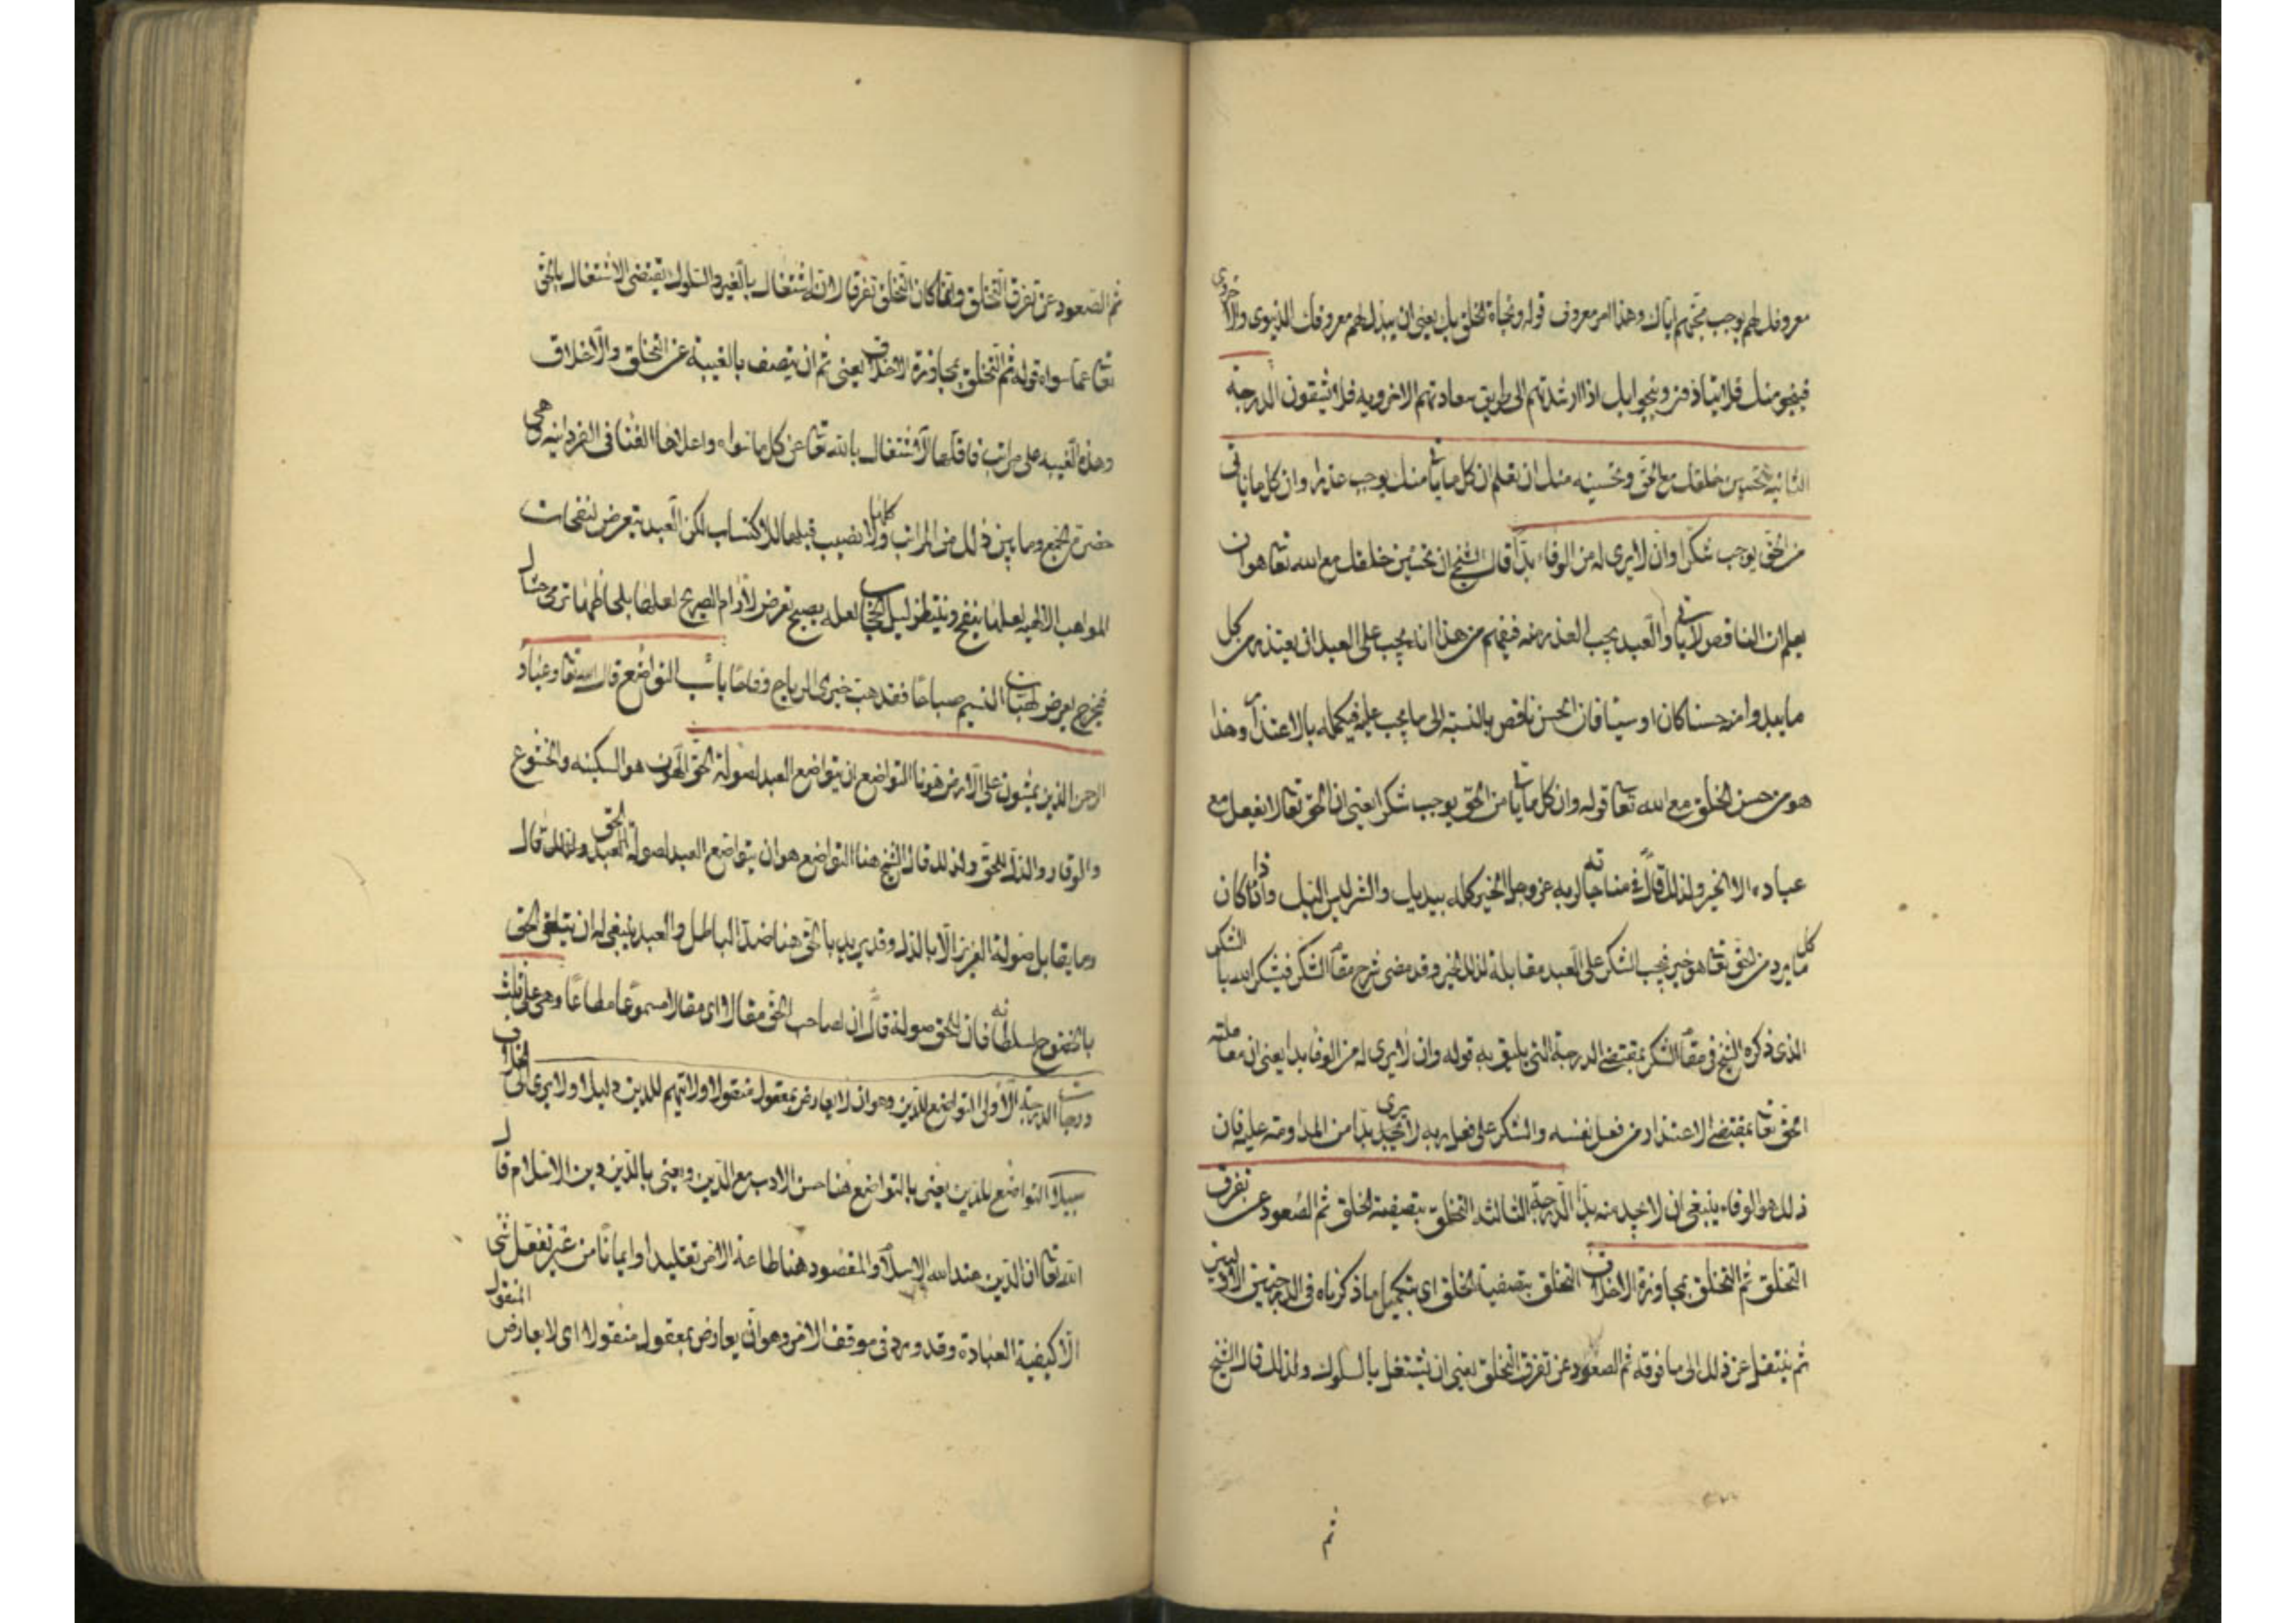 معروفك لهم يوجب محبتهم اياك وهذا امر معروف قوله ونجاة الخلق بك يعنى ان يبذل لهم معروفك الدنيوى والاخروى
فينجو منك فلا يتاذ فز وينجوا بك اذا ارشدتهم الى طريق سعادتهم الاخرويه فلا يشقون الدرجة
الثانيه تحسين خلقك مع الحق وتحسينه منك ان تعلم ان كل ما ياتى منك يوجب عذرا وان كل ما ياتى
من الحق يوجب شكرا وان لا يرى له من الوفاء بدّا قال الشيخ ان تحسين خلقك مع الله تعا هو ان
يعلم ان الناقص لا ياتى والعبد يجب العذر منه فيفهم من هذا انه يجب على العبد ان يعتذر من كل
ما يبدوا منه حسنا كان او سيئا فان الحسن ناقص بالنسبة الى ما يجب عليه فيكمله بالاعتذار وهذا
هو من حسن الخلق مع الله تعا قوله وان كل ما ياتى من الحق يوجب شكرا يعنى ان الحق تعا لا يفعل مع
عباده الا الخير ولذلك قال فى مناجاته لربه عز وجل الخير كله بيديك والشر ليس اليك واذا كان
كل ما يرد من الحق تعا هو خير فيجب الشكر على العبد مقابلة لذلك الخير وقد مضى شرح مقام الشكر فيشكر الله با الشكر
الذى ذكره الشيخ فى مقام الشكر بمقتضى الدرجة التى يليق به قوله وان لا يرى له من الوفا بدا يعنى ان معاملته
الحق تعا بمقتضى الاعتذار من فعل نفسه والشكر على فعل ربه لا يرى بدا من المداومة عليه فان
ذلك هو الوفاء ينبغى ان لا يجد منه بدّا الدرجة الثالثه التخلق بتصفية الخلق ثم الصعود عن تفرق
التخلق ثم التخلق بمجاوزة الاخلاق التخلق بتصفية الخلق اى بتكميل ما ذكرناه فى الدرجتين الاوليين
ثم ينتقل عن ذلك الى ما فوقه ثم الصعود عن تفرق التخلق يعنى ان يشتغل بالسلوك ولذلك قال الشيخ
ثم
ثم الصعود عن تفرق التخلق وانما كان التخلق تفرقا لانه اشتغال بالغير والسلوك يقتضى الاشتغال بالحق
تعا عما سواه قوله ثم التخلق بمجاوزة الاخلاق يعنى ثم ان يتصف بالغيبة عن التخلق والاخلاق
وهذه الغيبه على مراتب فاقلها الاشتغال بالله تعا عن كل ما سواه واعلاها الفنا فى الفردانيه وهى
حضرة الجمع وما بين ذلك من المراتب كلها ولا نصيب فيها للاكتساب لكن العبد يتعرض لنفحات
المواهب الالهيه لعلها ينفح وينتظر ليل لعله يصبح تعرض لارام الصريح لعلها بلحاظها ترمى حشاك
فيخرج يعرض لهبات النسيم صباحا فقد هبت خبرى الرياح وفاحا باب التواضع قال الله تعا وعباد
الرحمن الذين يمشون على الارض هونا التواضع ان يتواضع العبد لصولة الحق الهون هو السكينه والخشوع
والوقار والذل للحق ولذلك قال الشيخ هنا التواضع هو ان يتواضع العبد لصولة الحق ولذلك قال
وما يقابل صولة العزيز الا بالذل وقد يريد بالحق هنا ضد الباطل والعبد ينبغى له ان يتلقى الحق
بالخضوع لسلطانه فان للحق صولة قال ان لصاحب الحق مقالا اى مقالا مسموعا مطاعا وهى على ثلث
درجات الدرجة الاولى التواضع للدين وهو ان لا يعارض بمعقول منقولا ولا يتهم للدين دليلا ولا يرى الى الخلاف
سبيلا التواضع للدين يعنى بالتواضع هنا حسن الادب مع الدين ويعنى بالدين دين الاسلام قال
الله تعا ان الدين عند الله الاسلام والمقصود هنا طاعة الامر تقليدا وايمانا من غير تعقل شى
الا كيفية العبادة وقد ورد فى موقف الامر وهو ان يعارض بمعقول منقولا اى لا يعارض المنقول